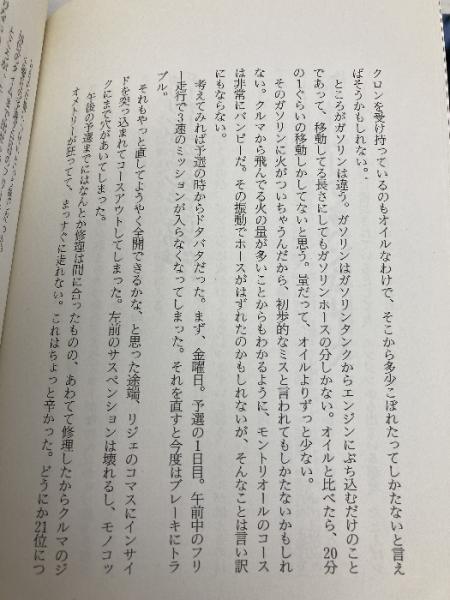 クロンを受け持っているのもオイルなわけで、そこから多少こぼれたってしかたないと言え
ばそうかもしれない。
ところがガソリンは違う。ガソリンはガソリンタンクからエンジンにぶち込むだけのこと
であって、移動してる長さにしてもガソリンホースの分しかない。オイルと比べたら、20分
の1ぐらいの移動しかしてないと思う。量だって、オイルよりずっと少ない。
そのガソリンに火がついちゃうんだから、初歩的なミスと言われてもしかたないかもしれ
ない。クルマから飛んでる火の量が多いことからもわかるように、モントリオールのコース
は非常にバンピーだ。その振動でホースがはずれたのかもしれないが、そんなことは言い訳
にもならない。
考えてみれば予選の時からドタバタだった。まず、金曜日。予選の1日目。午前中のフリ
ー走行で3速のミッションが入らなくなってしまった。それを直すと今度はブレーキにトラ
ブル。
それもやっと直してようやく全開できるかな、と思った途端、リジェのコマスにインサイ
ドを突っ込まれてコースアウトしてしまった。左前のサスペンションは壊れるし、モノコッ
クにまで穴があいてしまった。
午後の予選までにはなんとか修理は間に合ったものの、あわてて修理したからクルマのジ
オメトリーが狂ってて、まっすぐに走れない。これはちょっと辛かった。どうにか21位につ